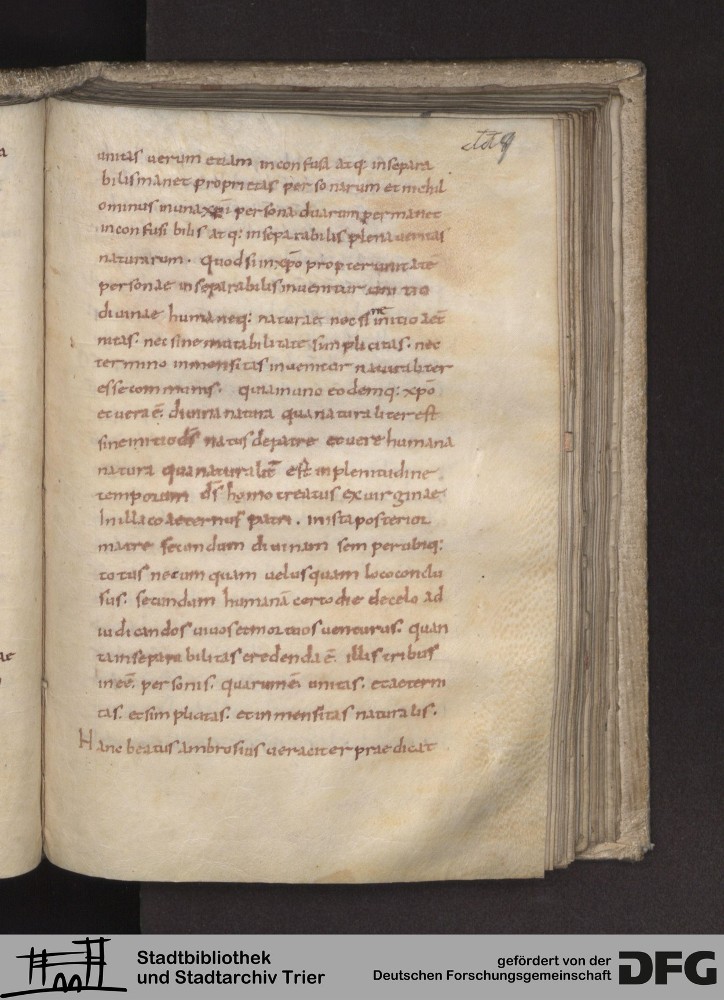 unitas uerum etiam inconfusa atq: insepara
bilis manet proprietas personarum et nichil
ominus in una xp̄i persona duarum permanet
inconfusi bilis atq: inseparabilis plena ueritas
naturarum. quod si in xp̄o propter unitatē
personae inseparabilis inuenitur
diuinae humaneq: naturae nec sine initio aet̄
nitas. nec sine mutabilitate simplicitas. nec
termino inmensitas inuenitur naturaliter
esse communis. quia in uno eodemq: xp̄o
et uera ē diuina natura qua naturaliter est
sine initio dš natus de patre et uere humana
natura qua naturalit̄ est in plenitudine
temporum dš homo creatus ex uirginae
In illa coaeternus patri. in ista posterior
matre secundum diuinam semper ubiq:
totus necumquam uel usquam loco conclu
sus. secundum humanā certo die de celo ad
iudicandos uiuos et mortuos uenturus. quan
ta inseparabilitas credenda ē. illis tribus
in eē. personis. quarum ē. unitas. et aeterni
tas. et simplicitas. et inmensitas naturalis.
Hanc beatus ambrosius ueraciter praedicat
Stadtbibliothek
und Stadtarchiv Trier
gefördert von der
Deutschen Forschungsgemeinschaft
DFG